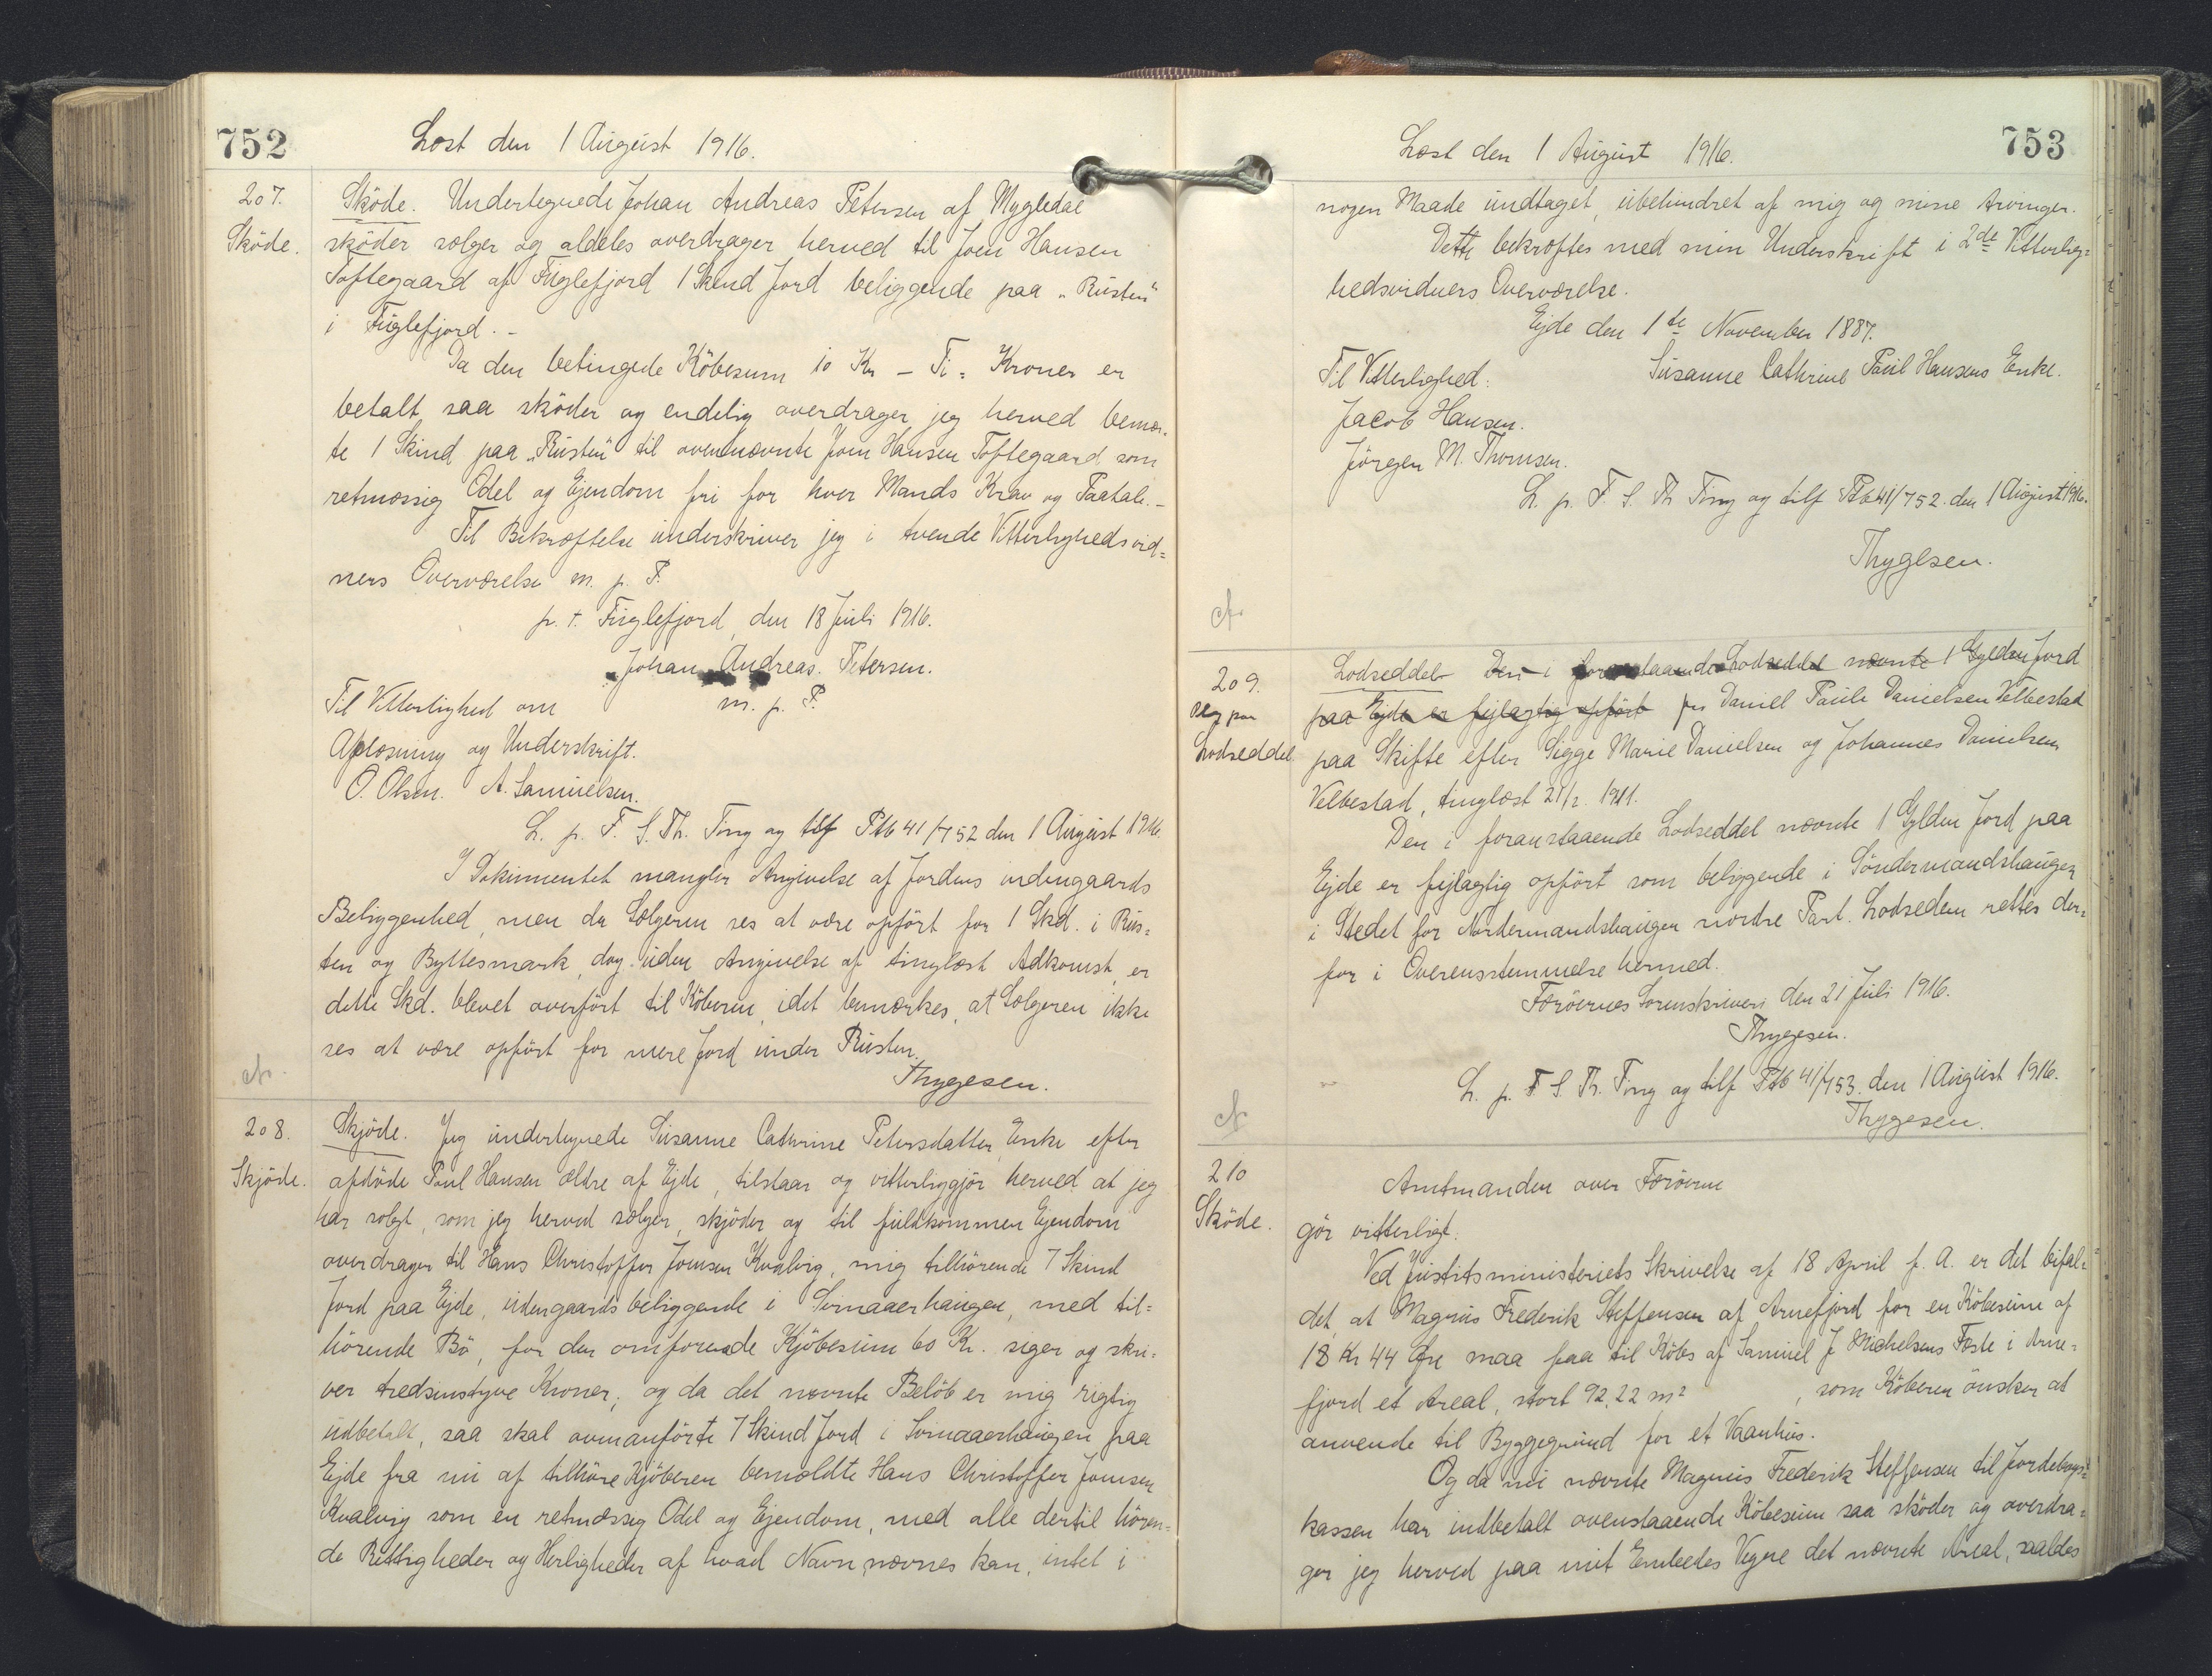 752
Læst den 1 August 1916.
207.
Sköde.
Sköde. Undertegnede Johan Andreas Petersen af Mygledal
sköder sælger og aldeles overdrager herved til Joen Hansen
Toftegaard af Fuglefjord 1 Skind Jord beliggende paa "Rusten"
i Fuglefjord. -
Da den betingede Köbesum 10 Kr - Ti = Kroner er
betalt, saa sköder og endelig overdrager jeg herved bemæl-
te 1 Skind paa "Rusten" til ovennævnte Joen Hansen Toftegaard som
retmæssig Odel og Ejendom fri for hver Mands Krav og Paatale. -
Til Bekræftelse underskriver jeg i tvende Vitterlighedsvid=
ners Overværelse m. p. P.
p. t. Fuglefjord, den 18 Juli 1916.
Johan Andreas Petersen.
m. p. P.
Til Vitterlighed om
Oplæsning og Underskrift.
O. Olsen. A. Samuelsen.
L. p. F. S. Th. Ting og tilf Ptb 41/752 den 1 August 1916.
I Dokumentet mangler Angivelse af Jordens indengaards
Beliggenhed, men da Sælgeren ses at være opfört for 1 Skd. i Rus=
ten og Byttesmark, dog uden Angivelse af tinglæst Adkomst, er
dette Skd. blevet overfört til Köberen, idet bemærkes, at Sælgeren ikke
ses at være opfört for mere Jord under Rusten.
Thygesen.
208.
Skjöde.
Skjöde. Jeg undertegnede Susanne Cathrine Petersdatter, Enke efter
afdöde Poul Hansen ældre af Ejde, tilstaar og vitterliggjör herved at jeg
har solgt, som jeg herved sælger, skjöder og til fuldkommen Ejendom
overdrager til Hans Christoffer Joensen Kvalvig, mig tilhörende 7 Skind
Jord paa Ejde, udengaards beliggende i Svinaaerhaugen, med til=
hörende Bö, for den omforenede Kjöbesum 60 Kr. siger og skri=
ver tredsindstyve Kroner; og da det nævnte Belöb er mig rigtig
udbetalt, saa skal ovenanförte 7 Skind Jord i Svinaaerhaugen paa
Ejde fra nu af tilhöre Kjöberen bemældte Hans Christoffer Joensen
Kvalvig som en retmæssig Odel og Ejendom, med alle dertil hören=
de Rettigheder og Herligheder af hvad Navn nævnes kan, intet i
753
Læst den 1 August 1916.
nogen Maade undtaget, ubehindret af mig og mine Arvinger.
Dette bekræftes med min Underskrift i 2de Vitterlig=
hedsvidners Overværelse.
Ejde den 1te November 1887.
Susanne Cathrine Poul Hansens Enke.
Til Vitterlighed:
Jacob Hansen.
Jörgen M. Thomsen.
L. p. F. S. Th Ting og tilf Ptb 41/752. den 1 August 1916.
Thygesen.
209.
Lodseddel
Lodseddel Den i foranstaaende Lodseddel nævnte 1 Gylden Jord
paa Ejde er fejlagtig opfört for Daniel Pauli Danielsen Velbestad
paa Skifte efter Sigge Marie Danielsen og Johannes Danielsen
Velbestad, tinglæst 21/2. 1911.
Den i foranstaaende Lodseddel nævnte 1 Gylden Jord paa
Ejde er fejlagtig opfört som beliggende i Söndermandshaugen
i Stedet for Nordermandshaugen nordre Part. Lodsedlen rettes der=
for i Overensstemmelse hermed.
Færöernes Sorenskriveri den 21 Juli 1916.
Thygesen.
L. p. F. S. Th. Ting og tilf Ptb 41/753. den 1 August 1916.
Thygesen.
210
Sköde.
Amtmanden over Færöerne
gör vitterligt:
Ved Justitsministeriets Skrivelse af 18 April f. A. er det bifal=
det, at Magnus Frederik Steffensen af Arnefjord for en Köbesum af
18 Kr 44 Öre maa faa til Köbs af Samuel J Michelsens Fæste i Arne=
fjord et Areal, stort 92,22 m², som Köberen önsker at
anvende til Byggegrund for et Vaanhus.
Og da nu nævnte Magnus Frederik Steffensen til Jordebogs=
kassen har indbetalt ovenstaaende Köbesum saa sköder og overdra=
ger jeg herved paa mit Embedes Vegne det nævnte Areal, saaledes